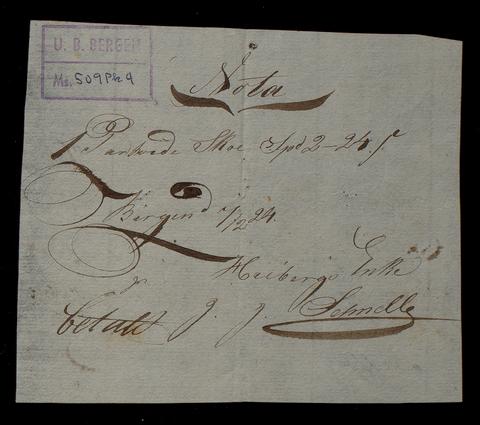 U. B. BERGEN
Ms. 509 Pk 4
Nota
1 Par Skoe Spd 2 - 24 s
Bergen d 7/12 24.
Heibergs Enke
betalt J. J. Schnelle